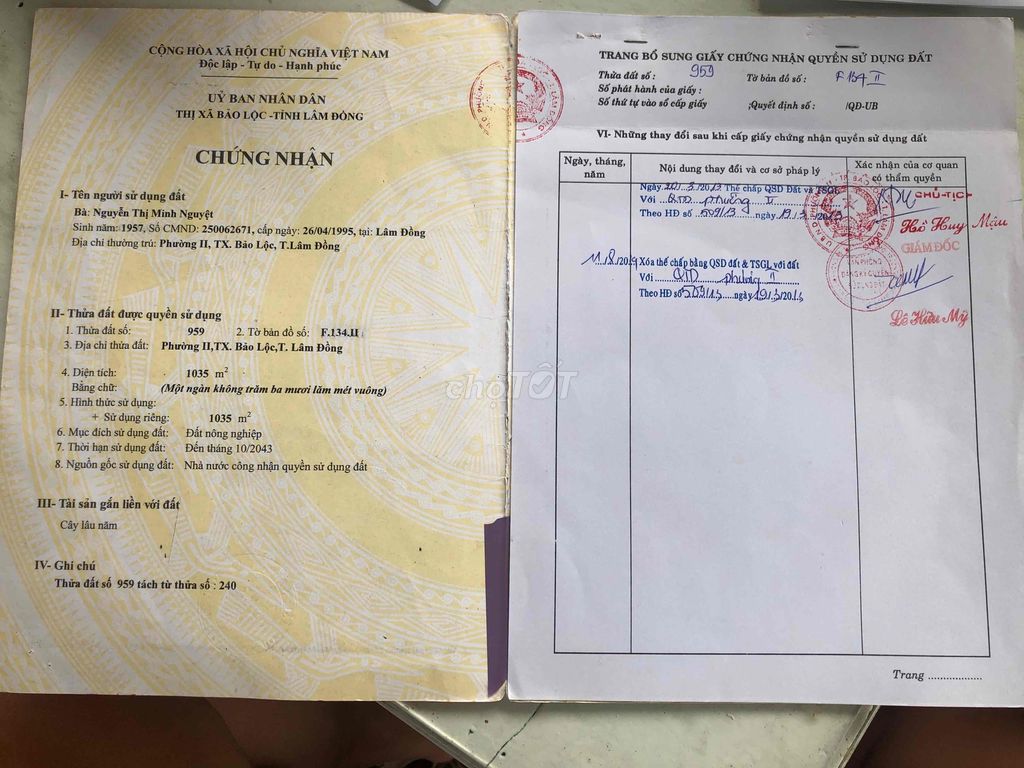 CỘNG HÒA XÃ HỘI CHỦ NGHĨA VIỆT NAM
Độc lập - Tự do - Hạnh phúc
UỶ BAN NHÂN DÂN
THỊ XÃ BẢO LỘC -TỈNH LÂM ĐỒNG
CHỨNG NHẬN
I- Tên người sử dụng đất
Bà: Nguyễn Thị Minh Nguyệt
Sinh năm: 1957, Số CMND: 250062671, cấp ngày: 26/04/1995, tại: Lâm Đồng
Địa chỉ thường trú: Phường II, TX. Bảo Lộc, T.Lâm Đồng
II- Thửa đất được quyền sử dụng
1. Thửa đất số: 959 2. Tờ bản đồ số: F.134.II
3. Địa chỉ thửa đất: Phường II,TX. Bảo Lộc,T. Lâm Đồng
4. Diện tích: 1035 m²
Bằng chữ: (Một ngàn không trăm ba mươi lăm mét vuông)
5. Hình thức sử dụng:
+ Sử dụng riêng: 1035 m²
6. Mục đích sử dụng đất: Đất nông nghiệp
7. Thời hạn sử dụng đất: Đến tháng 10/2043
8. Nguồn gốc sử dụng đất: Nhà nước công nhận quyền sử dụng đất
III- Tài sản gắn liền với đất
Cây lâu năm
IV- Ghi chú
Thửa đất số 959 tách từ thửa số : 240
TRANG BỔ SUNG GIẤY CHỨNG NHẬN QUYỀN SỬ DỤNG ĐẤT
Thửa đất số : 959 Tờ bản đồ số : F 134 II
Số phát hành của giấy :
Số thứ tự vào sổ cấp giấy ;Quyết định số : /QĐ-UB
VI- Những thay đổi sau khi cấp giấy chứng nhận quyền sử dụng đất
Ngày, tháng, năm
Nội dung thay đổi và cơ sở pháp lý
Xác nhận của cơ quan có thẩm quyền
Ngày 20/3/2013 Thế chấp QSD Đất và TSGL
Với QTD phường II
Theo HĐ số 509/13 ngày 19/3/2013
CHỦ TỊCH
Hồ Huy Mậu
11/8/2019 Xóa thế chấp bằng QSD đất & TSGL với đất
Với QTD phường II
Theo HĐ số 509/13 ngày 19/3/2013
GIÁM ĐỐC
Lê Hữu Mỹ
chợTỐT
Trang